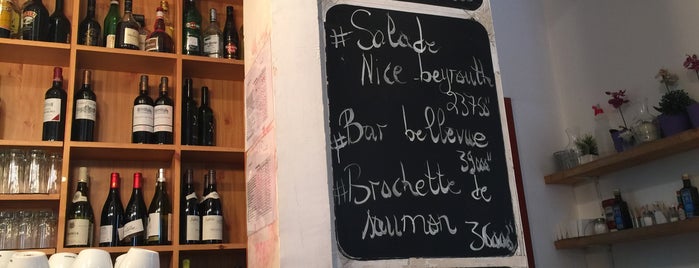 # Salade
Nice beyrouth
23750"
# Bar bellevue
39000"
# Brochette de
saumon 36000"